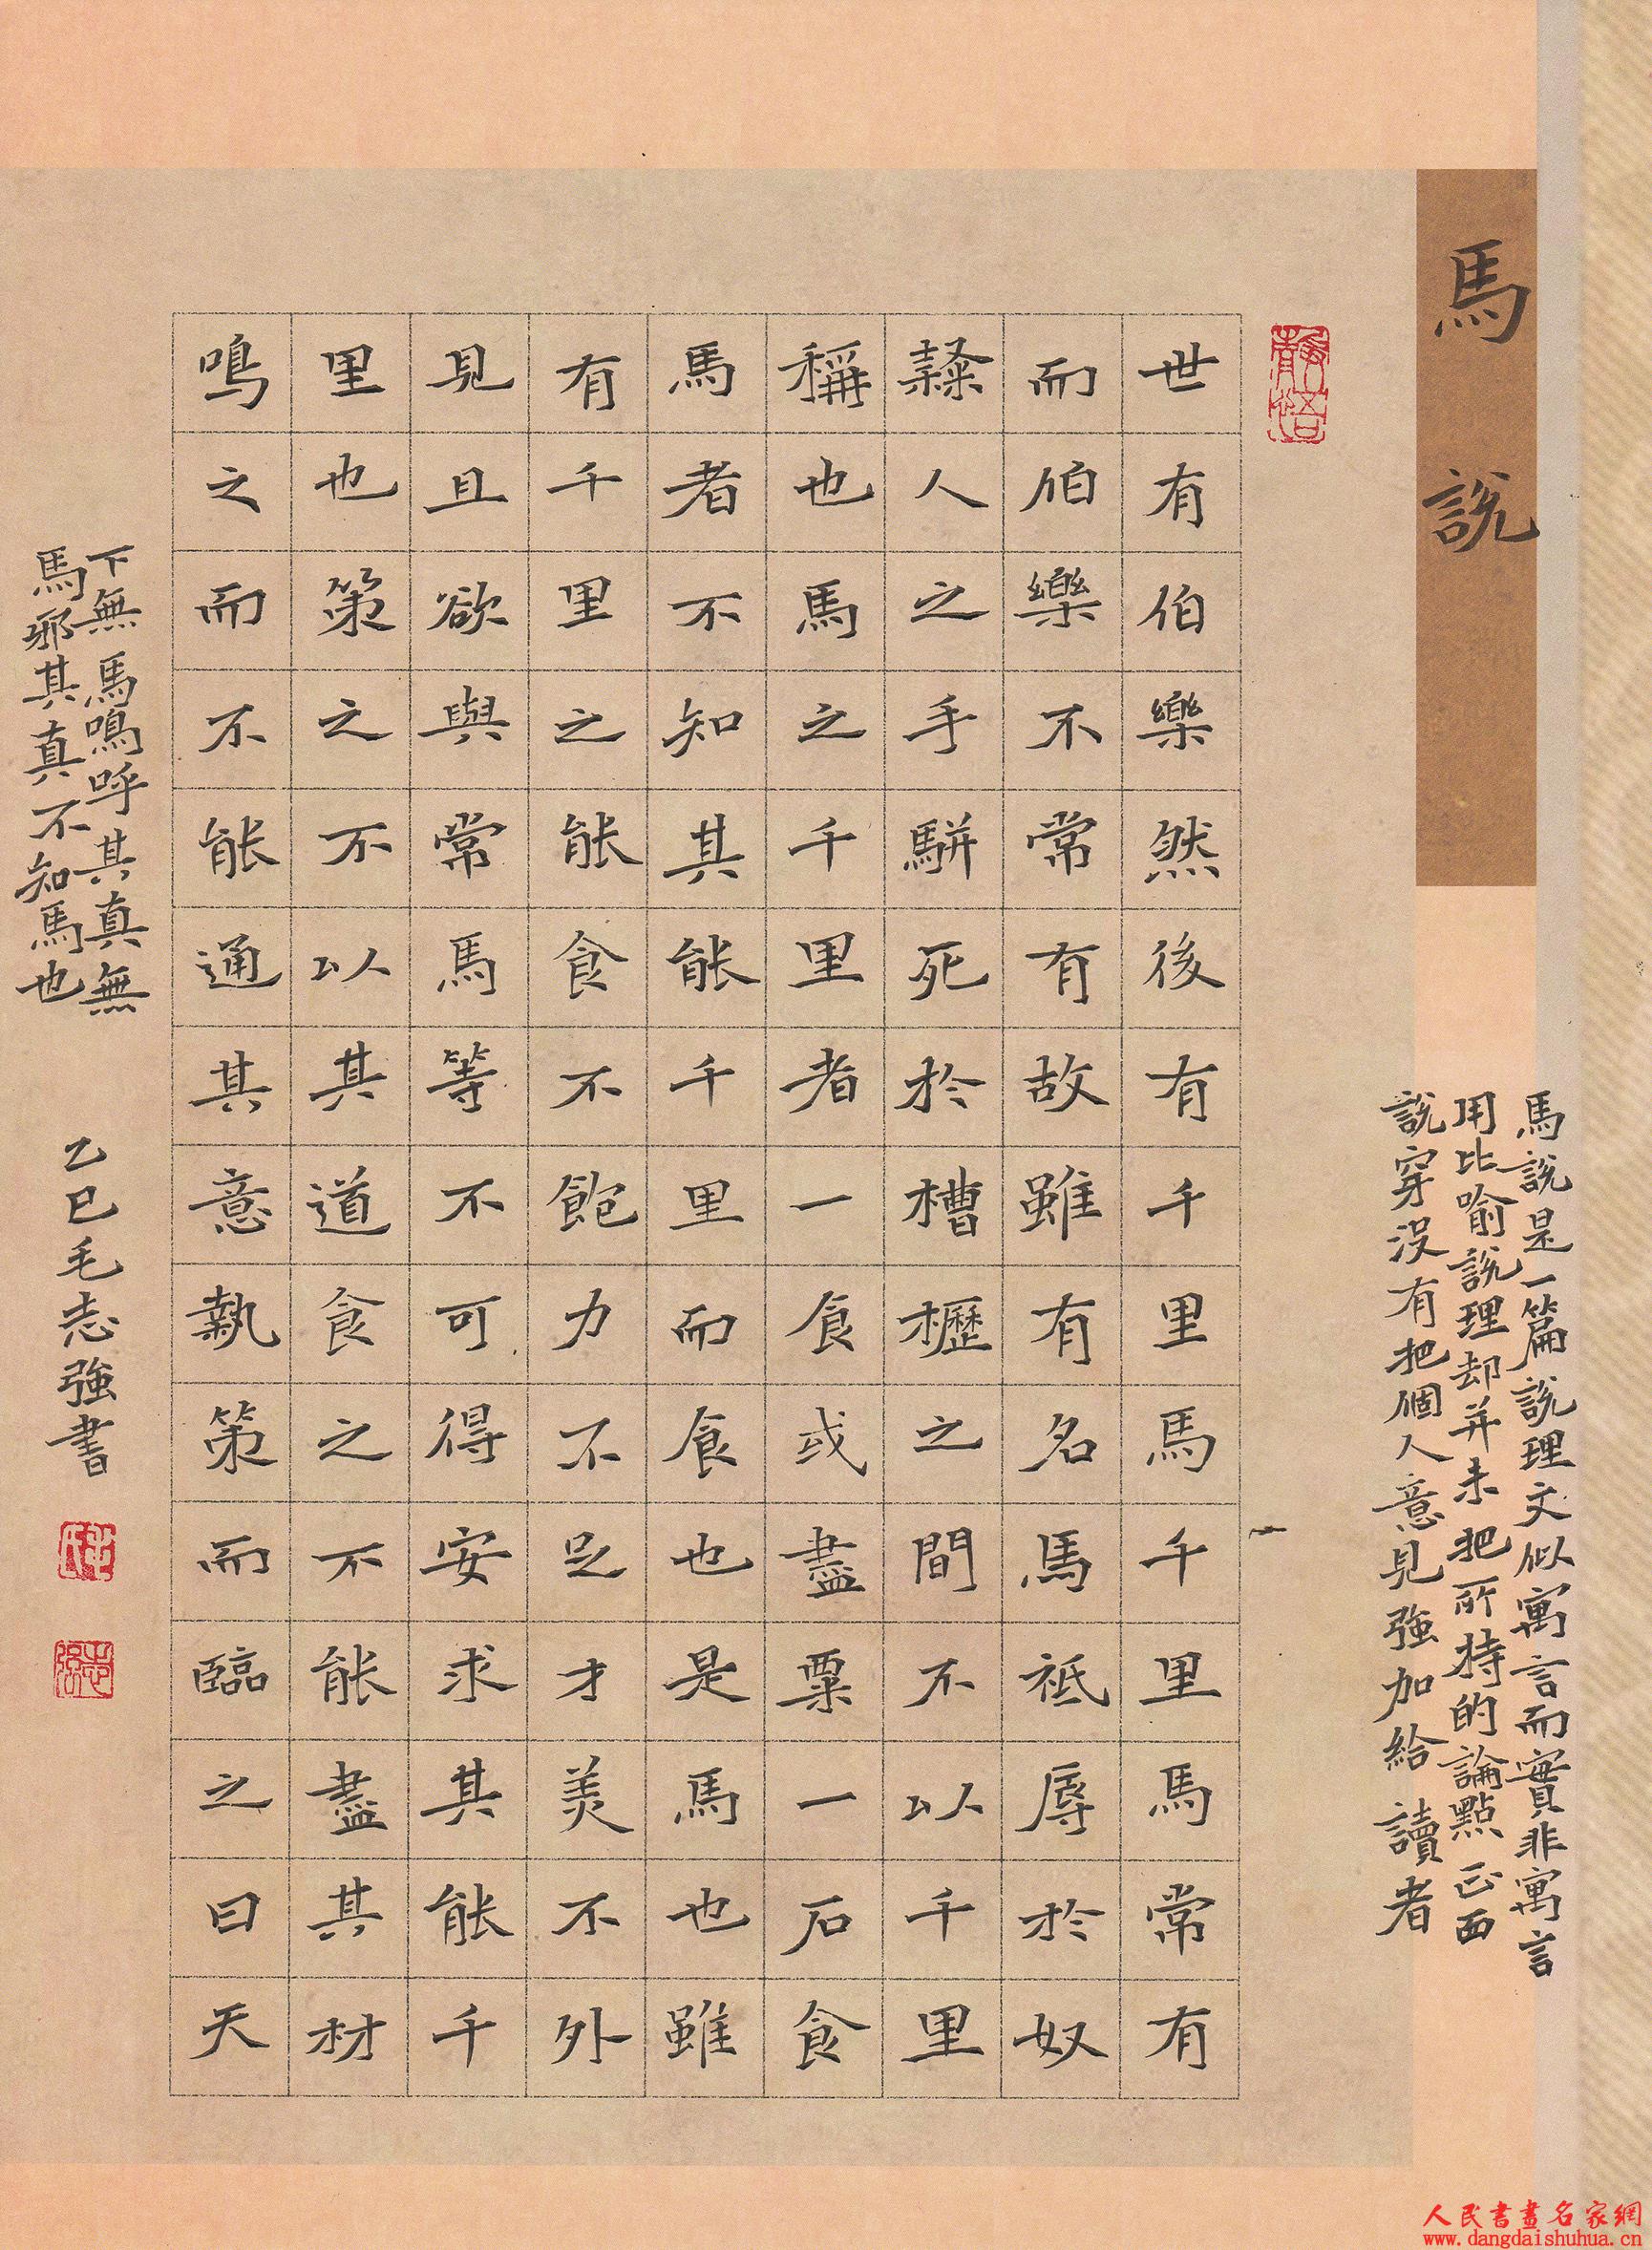 馬說
馬說是一篇說理文似寓言而實非寓言
用比喻說理却并未把所持的論點正面
說穿沒有把個人意見強加給讀者
靜悟
世有伯樂然後有千里馬千里馬常有
而伯樂不常有故雖有名馬祗辱於奴
隸人之手駢死於槽櫪之間不以千里
稱也馬之千里者一食或盡粟一石食
馬者不知其能千里而食也是馬也雖
有千里之能食不飽力不足才美不外
見且欲與常馬等不可得安求其能千
里也策之不以其道食之不能盡其材
鳴之而不能通其意執策而臨之曰天
下無馬鳴呼其真無
馬邪其真不知馬也
乙巳毛志強書
毛氏
志強
人民書畫名家網
www.dangdaishuhua.cn